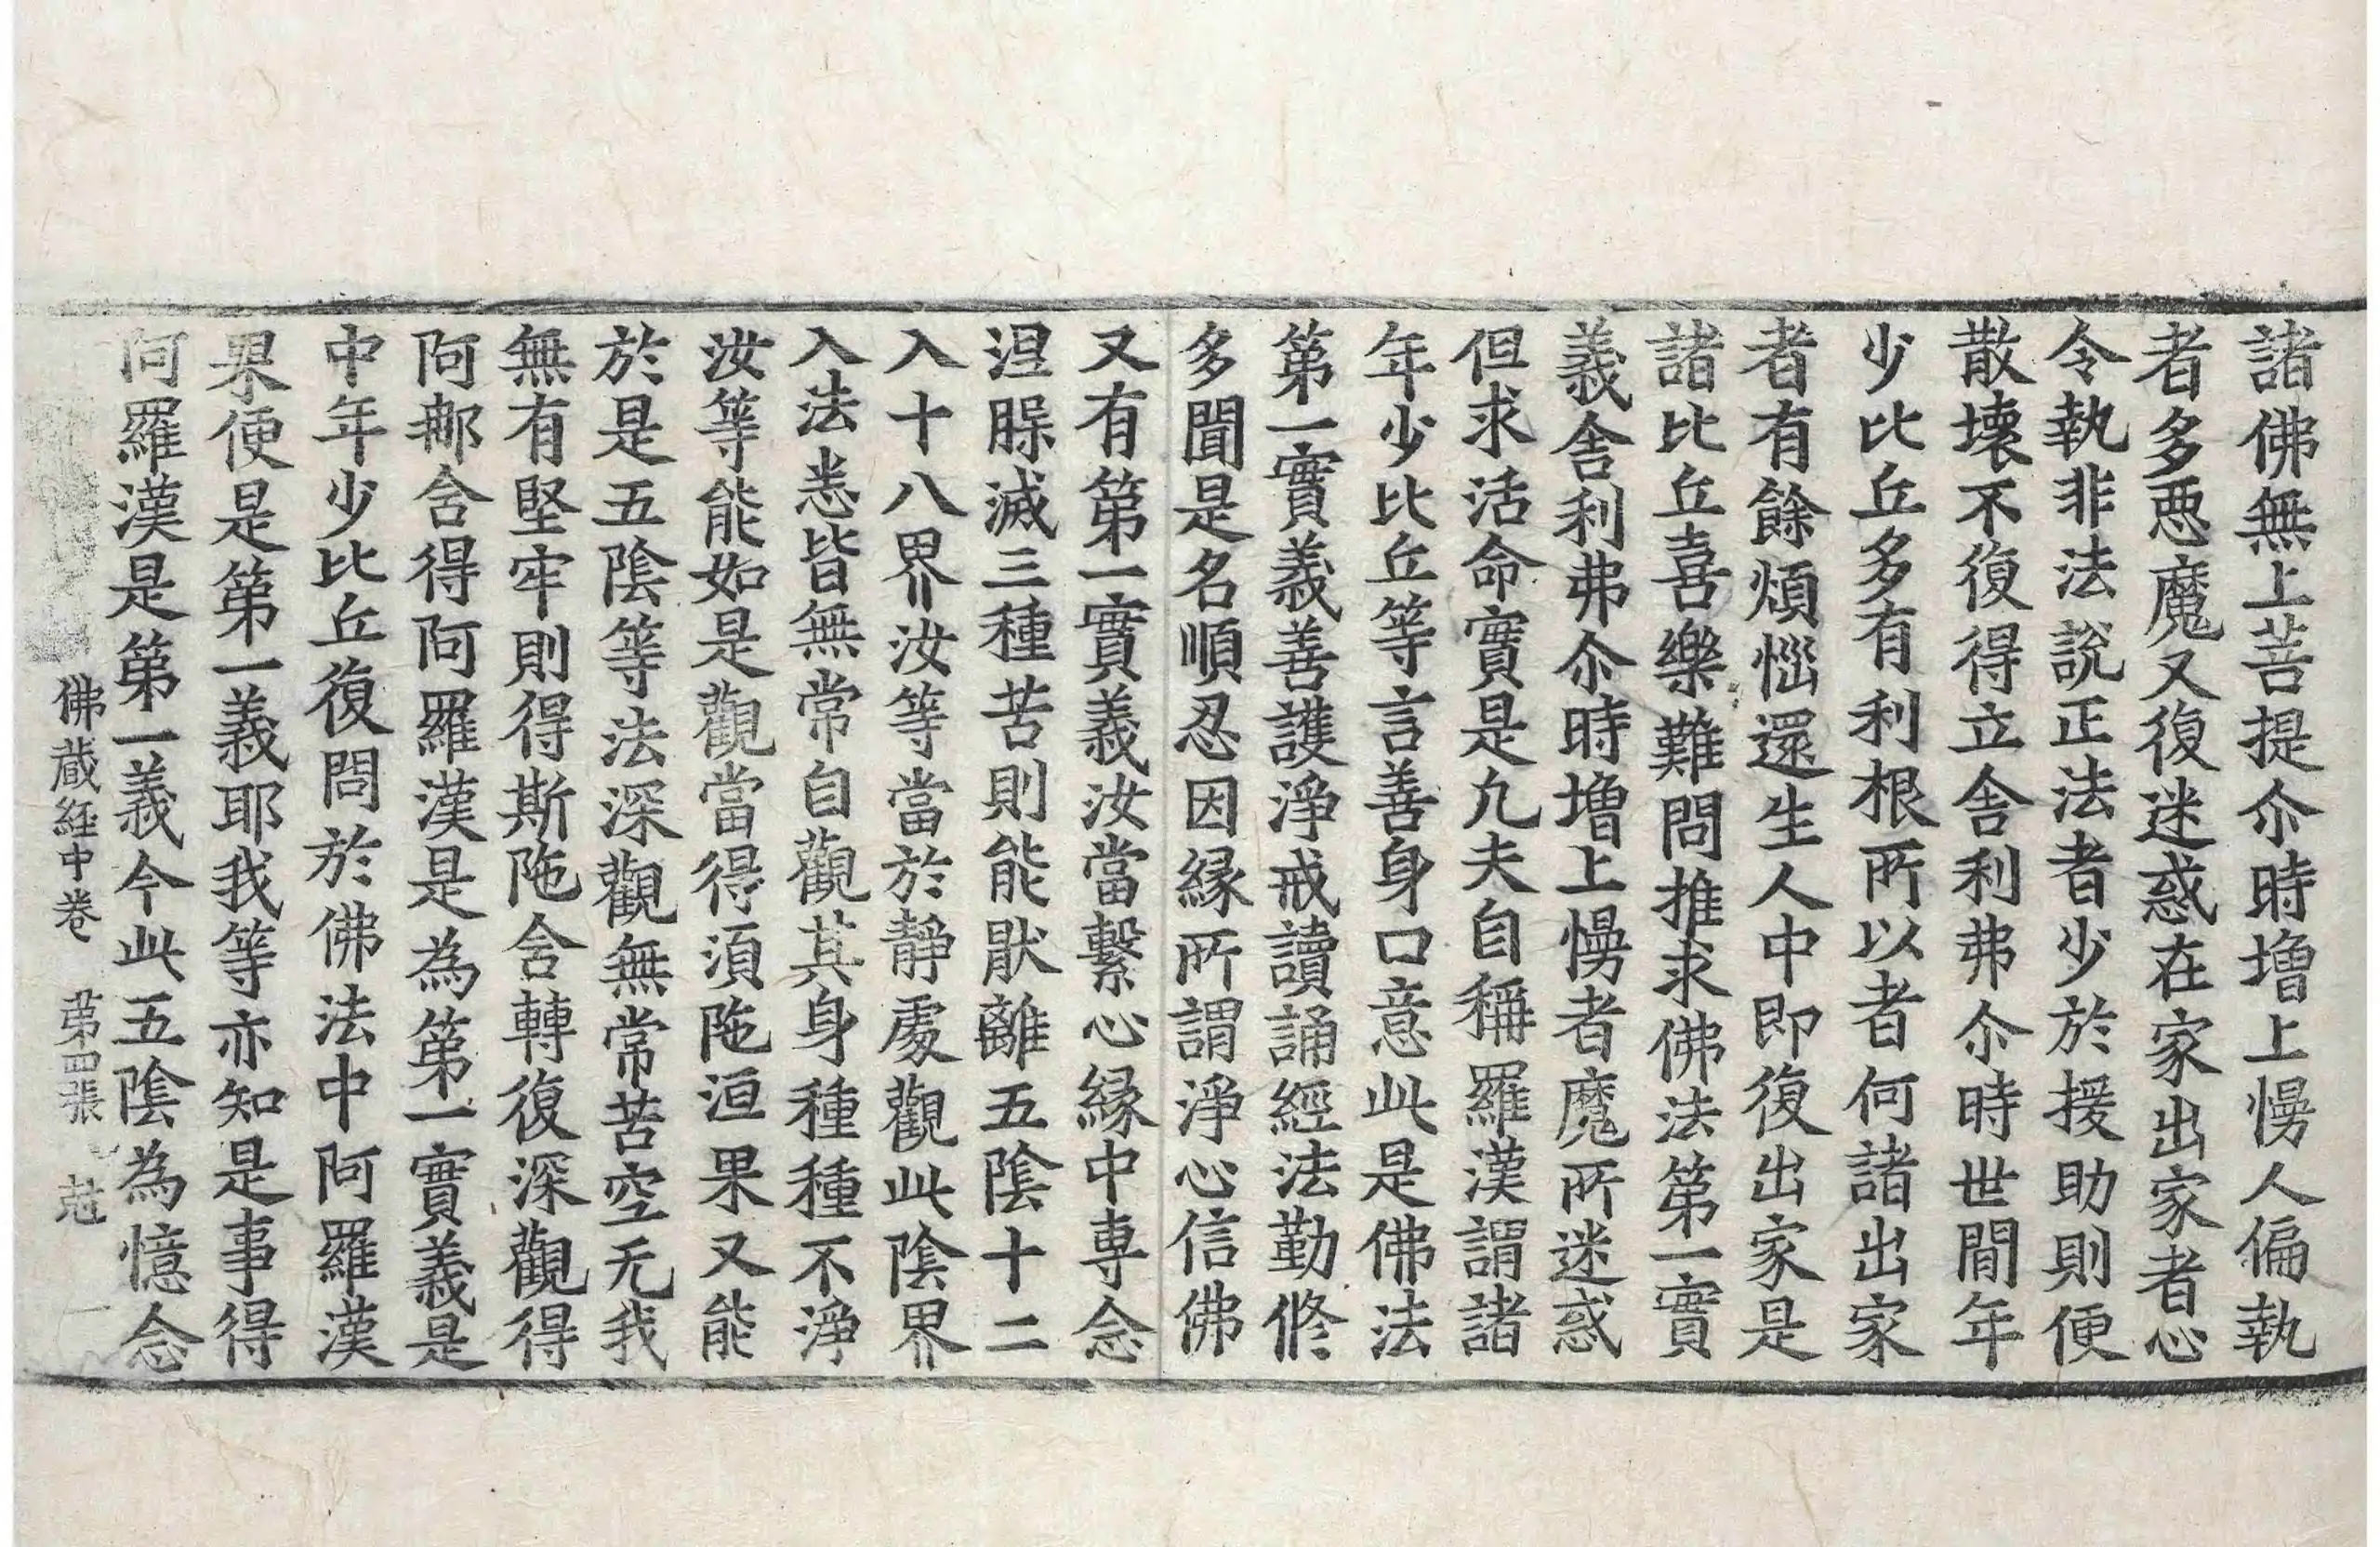 諸佛無上菩提尒時增上慢人偏執
者多悪魔又復迷惑在家出家者心
令執非法說正法者少於援助則便
散壞不復得立舍利弗尒時世間年
少比丘多有利根所以者何諸出家
者有餘煩惱還生人中即復出家是
諸比丘喜樂難問推求佛法第一實
義舍利弗尒時增上慢者魔所迷惑
但求活命實是凢夫自稱羅漢謂諸
年少比丘等言善身口意此是佛法
第一實義善護淨戒讀誦經法勤修
多聞是名順忍因緣所謂淨心信佛
又有第一實義汝當繫心緣中專念
涅槃滅三種苦則能猒離五陰十二
入十八界汝等當於靜處觀此陰界
入法悉皆無常自觀其身種種不淨
汝等能如是觀當得須陁洹果又能
於是五陰等法深觀無常苦空无我
無有堅牢則得斯陁含轉復深觀得
阿那含得阿羅漢是為第一實義是
中年少比丘復問於佛法中阿羅漢
果便是第一義耶我等亦知是事得
阿羅漢是第一義今此五陰為憶念
佛藏経中卷 第四張 㓂